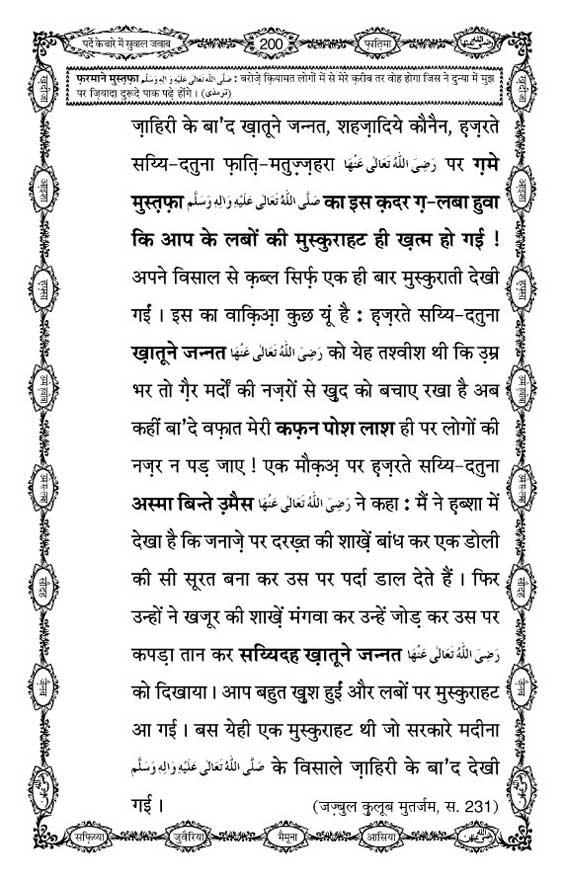 पर्दे के बारे में सुवाल जवाब
200
फ़ातिमा
फ़रमाने मुस्तफ़ा صَلَّى اللّٰهُ تَعَالٰى عَلَيْهِ وَاٰلِهٖ وَسَلَّم : बरोज़े क़ियामत लोगों में से मेरे क़रीब तर वोह होगा जिस ने दुन्या में मुझ
पर ज़ियादा दुरूदे पाक पढ़े होंगे । (ترمذی)
ज़ाहिरी के बा'द ख़ातूने जन्नत, शहज़ादिये कौनैन, हज़रते
सय्यि-दतुना फ़ाति-मतुज़्ज़हरा رَضِىَ اللّٰهُ تَعَالٰى عَنْهَا पर ग़मे
मुस्तफ़ा صَلَّى اللّٰهُ تَعَالٰى عَلَيْهِ وَاٰلِهٖ وَسَلَّم का इस क़दर ग़-लबा हुवा
कि आप के लबों की मुस्कुराहट ही ख़त्म हो गई !
अपने विसाल से क़ब्ल सिर्फ़ एक ही बार मुस्कुराती देखी
गईं । इस का वाक़िआ़ कुछ यूं है : हज़रते सय्यि-दतुना
ख़ातूने जन्नत رَضِىَ اللّٰهُ تَعَالٰى عَنْهَا को येह तश्वीश थी कि उ़म्र
भर तो ग़ैर मर्दों की नज़रों से ख़ुद को बचाए रखा है अब
कहीं बा'दे वफ़ात मेरी कफ़न पोश लाश ही पर लोगों की
नज़र न पड़ जाए ! एक मौक़अ़ पर हज़रते सय्यि-दतुना
अस्मा बिन्ते उ़मैस رَضِىَ اللّٰهُ تَعَالٰى عَنْهَا ने कहा : मैं ने ह़ब्शा में
देखा है कि जनाज़े पर दरख़्त की शाख़ें बांध कर एक डोली
की सी सूरत बना कर उस पर पर्दा डाल देते हैं । फिर
उन्हों ने खजूर की शाख़ें मंगवा कर उन्हें जोड़ कर उस पर
कपड़ा तान कर सय्यिदह ख़ातूने जन्नत رَضِىَ اللّٰهُ تَعَالٰى عَنْهَا
को दिखाया । आप बहुत ख़ुश हुईं और लबों पर मुस्कुराहट
आ गई । बस येही एक मुस्कुराहट थी जो सरकारे मदीना
صَلَّى اللّٰهُ تَعَالٰى عَلَيْهِ وَاٰلِهٖ وَسَلَّم के विसाले ज़ाहिरी के बा'द देखी
गई ।
(जज़्बुल क़ुलूब मुतर्जम, स. 231)
सफ़िय्या
जुवैरिया
मैमूना
आसिया